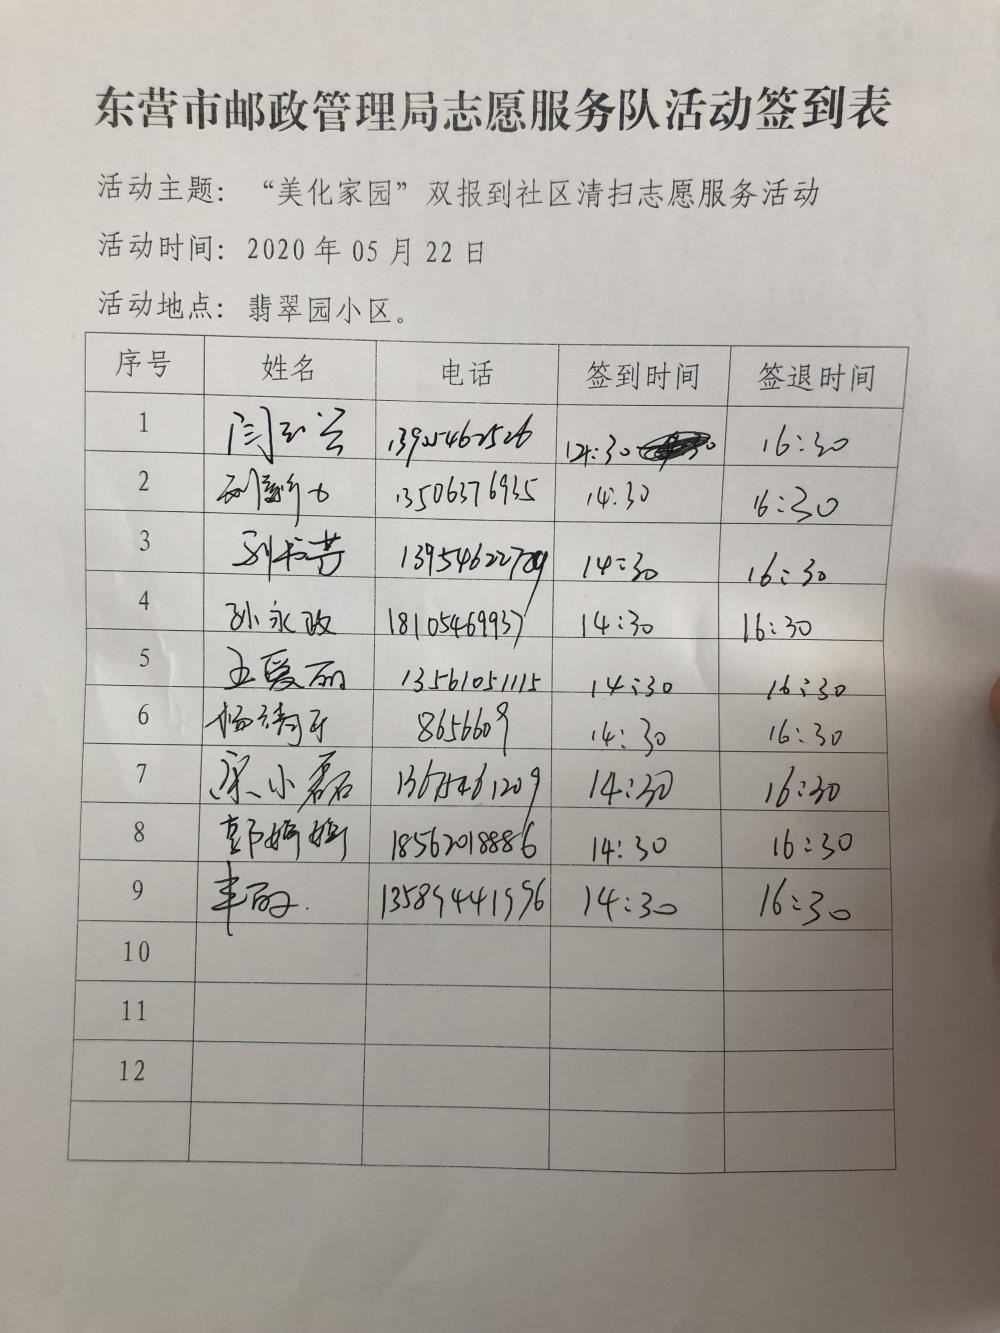 东营市邮政管理局志愿服务队活动签到表
活动主题：“美化家园”双报到社区清扫志愿服务活动
活动时间：2020 年 05 月 22 日
活动地点：翡翠园小区。
序号 姓名 电话 签到时间 签退时间
1 闫玉兰 13905462526 14:30 16:30
2 13506376935 14:30 16:30
3 刘书芳 13954622709 14:30 16:30
4 孙永政 18105469937 14:30 16:30
5 王爱丽 13561051115 14:30 16:30
6 8656609 14:30 16:30
7 宋小磊 14:30 16:30
8 郭娇娇 18562018886 14:30 16:30
9 丰丽 14:30 16:30
10
11
12